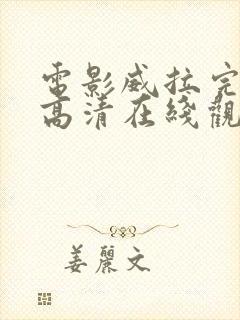 電影威拉完
高清在綫觀
姜麗文